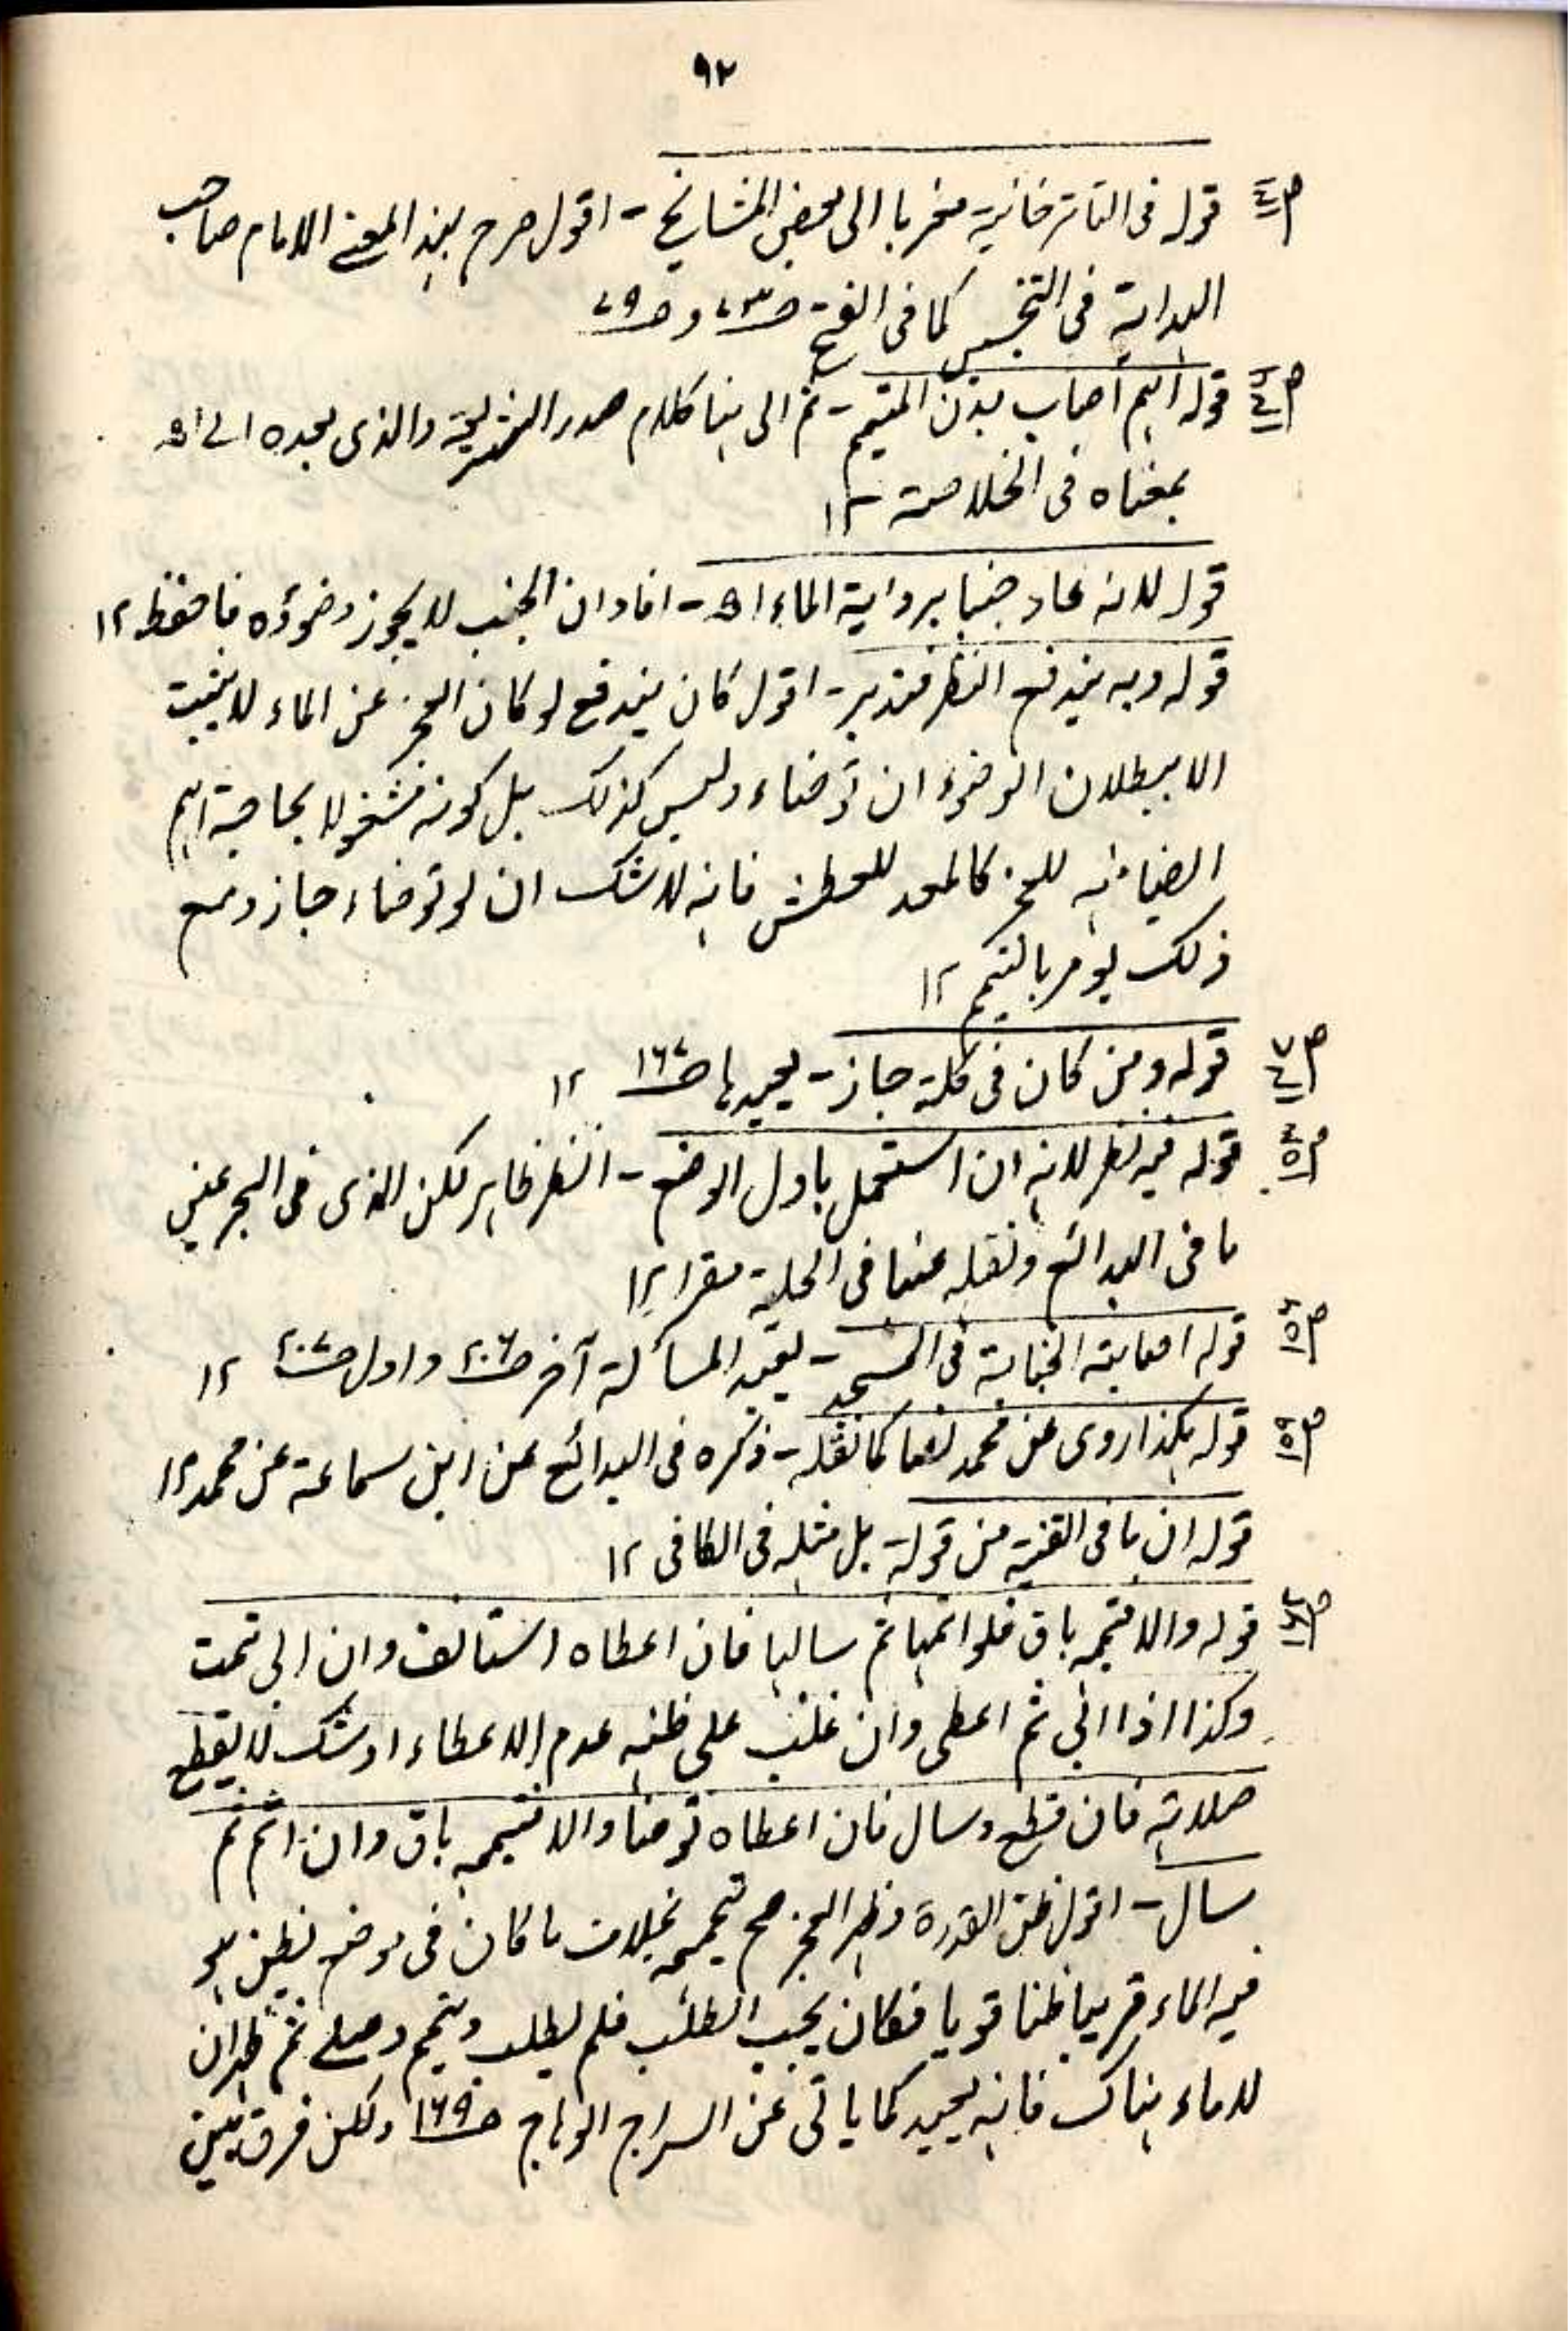 ٩٢
قوله فى التاترخانية معزيا الى بعض المشائخ - اقول صرح بهذا المعنى الامام صاحب
الهداية فى التجنيس كما فى الفتح
قوله اهم اصاب بدن المتيمم - ثم الى هنا كلام صدر الشريعة والذى بعده الى اه
بمعناه فى الخلاصة ١٢
قوله لانه عاد جنبا برواية الماء اه - افاد ان الجنب لا يجوز وضوؤه فاحفظ ١٢
قوله وبه يندفع النظر فتدبر - اقول كان يندفع لو كان العجز عن الماء لا يثبت
الا ببطلان الوضوء ان توضاء وليس كذلك بل كونه مشغولا بحاجة اهم
ايضا للعجز كالمعد للعطش فانه لا شك ان لو توضاء جاز ومع
ذلك يومر بالتيمم ١٢
قوله ومن كان فى كلة جاز - يعيدها ص١٦٧ ١٢
قوله فيه نظر لانه ان استعمل باول الوضع - النظر ظاهر لكن الذى فى البحر عنى
ما فى البدائع ونقله عنها فى الحلية مقرا ١٢
قوله اصابته الجنابة فى المسجد - يعيد المسألة آخر ص٢٠٦ واول ص٢٠٧ ١٢
قوله هكذا روى عن محمد نصا كما نقله - ذكره فى البدائع عن ابن سماعة عن محمد ١٢
قوله ان ما فى القنية من قوله بل مثله فى الكافى ١٢
قوله والا فتيممه باق فلو اتمها ثم سألها فان اعطاه استأنف وان ابى تمت
وكذا اذا ابى ثم اعطى وان غلب على ظنه عدم الاعطاء او شك لا يقطع
صلاته فان قطع وسال فان اعطاه توضا والا فتيممه باق وان اتم ثم
سال - اقول ظن القدرة وظهر العجز صح تيممه بخلاف ما كان فى موضع يظن هو
فيه الماء قريبا ظنا قويا فكان يجب الطلب فلم يطلب وتيمم وصلى ثم ظهر ان
لا ماء هناك فانه يعيد كما ياتى عن السراج الوهاج ص١٦٩ ولكن فرق بين